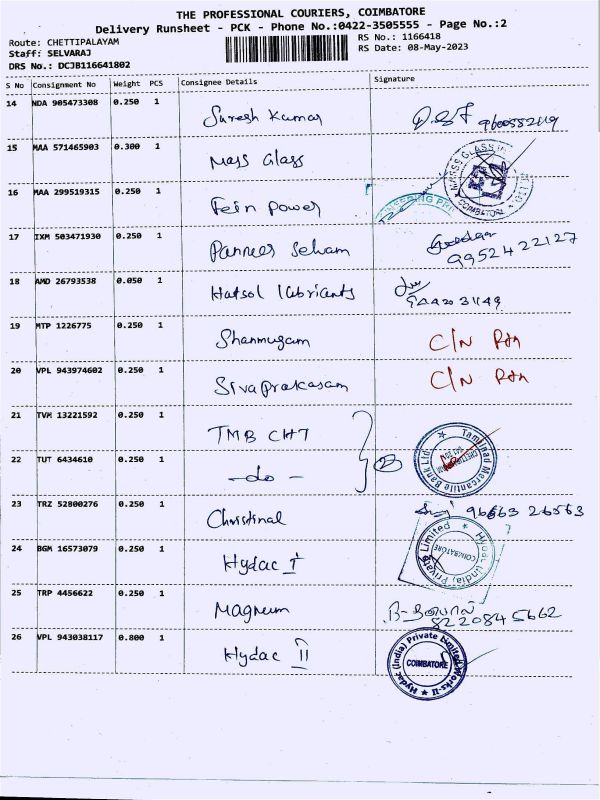 THE PROFESSIONAL COURIERS, COIMBATORE
Delivery Runsheet - PCK - Phone No.:0422-3505555 - Page No.:2
Route: CHETTIPALAYAM RS No.: 1166418
Staff: SELVARAJ RS Date: 08-May-2023
DRS No.: DCJB116641802
S No Consignment No Weight PCS Consignee Details Signature
14 NDA 905473308 0.250 1 Suresh Kumar
15 MAA 571465903 0.300 1 Mass Glass COIMBATORE
16 MAA 299519315 0.250 1 Fein Power
17 IXM 503471930 0.250 1 Panneer Selvam 9952422127
18 AMD 26793538 0.050 1 Hatsol lubricants
19 MTP 1226775 0.250 1 Shanmugam C/N Rtn
20 VPL 943974602 0.250 1 Sivaprakasam C/N Rtn
21 TVM 13221592 0.250 1 TMB CHT Tamilnad Mercantile Bank Ltd
22 TUT 6434610 0.250 1 -do- 2
23 TRZ 52800276 0.250 1 Christinal 96663 26563
24 BGM 16573079 0.250 1 Hydac I Hydac (India) Private Limited COIMBATORE
25 TRP 4456622 0.250 1 Magnum 8220845662
26 VPL 943038117 0.800 1 Hydac II Hydac (India) Private Limited Works-II COIMBATORE